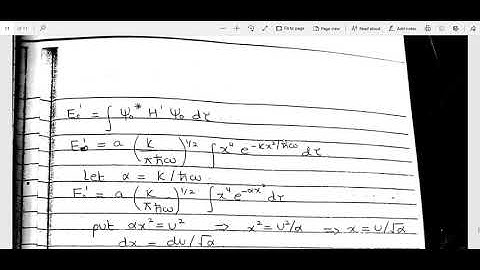 11 of 11
Fit to page
Page view
Read aloud
Add notes
E₀' = ∫ ψ₀* H' ψ₀ dτ
E₀' = a (k/πħω)^1/2 ∫ x⁴ e^-kx²/ħω dτ
Let α = k/ħω
E₀' = a (k/πħω)^1/2 ∫ x⁴ e^-αx² dτ
put αx² = u² ⇒ x² = u²/α ⇒ x = u/√α
dx = du/√α